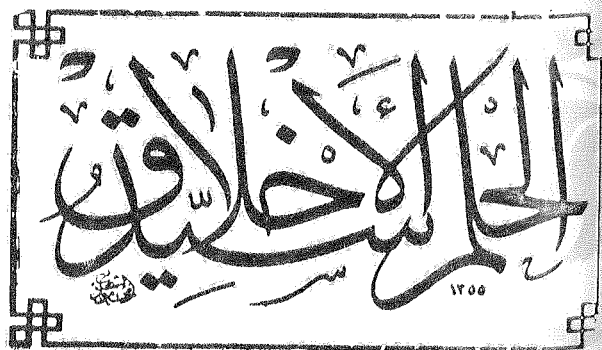 الحلم سيّد الأخلاق
١٢٥٥